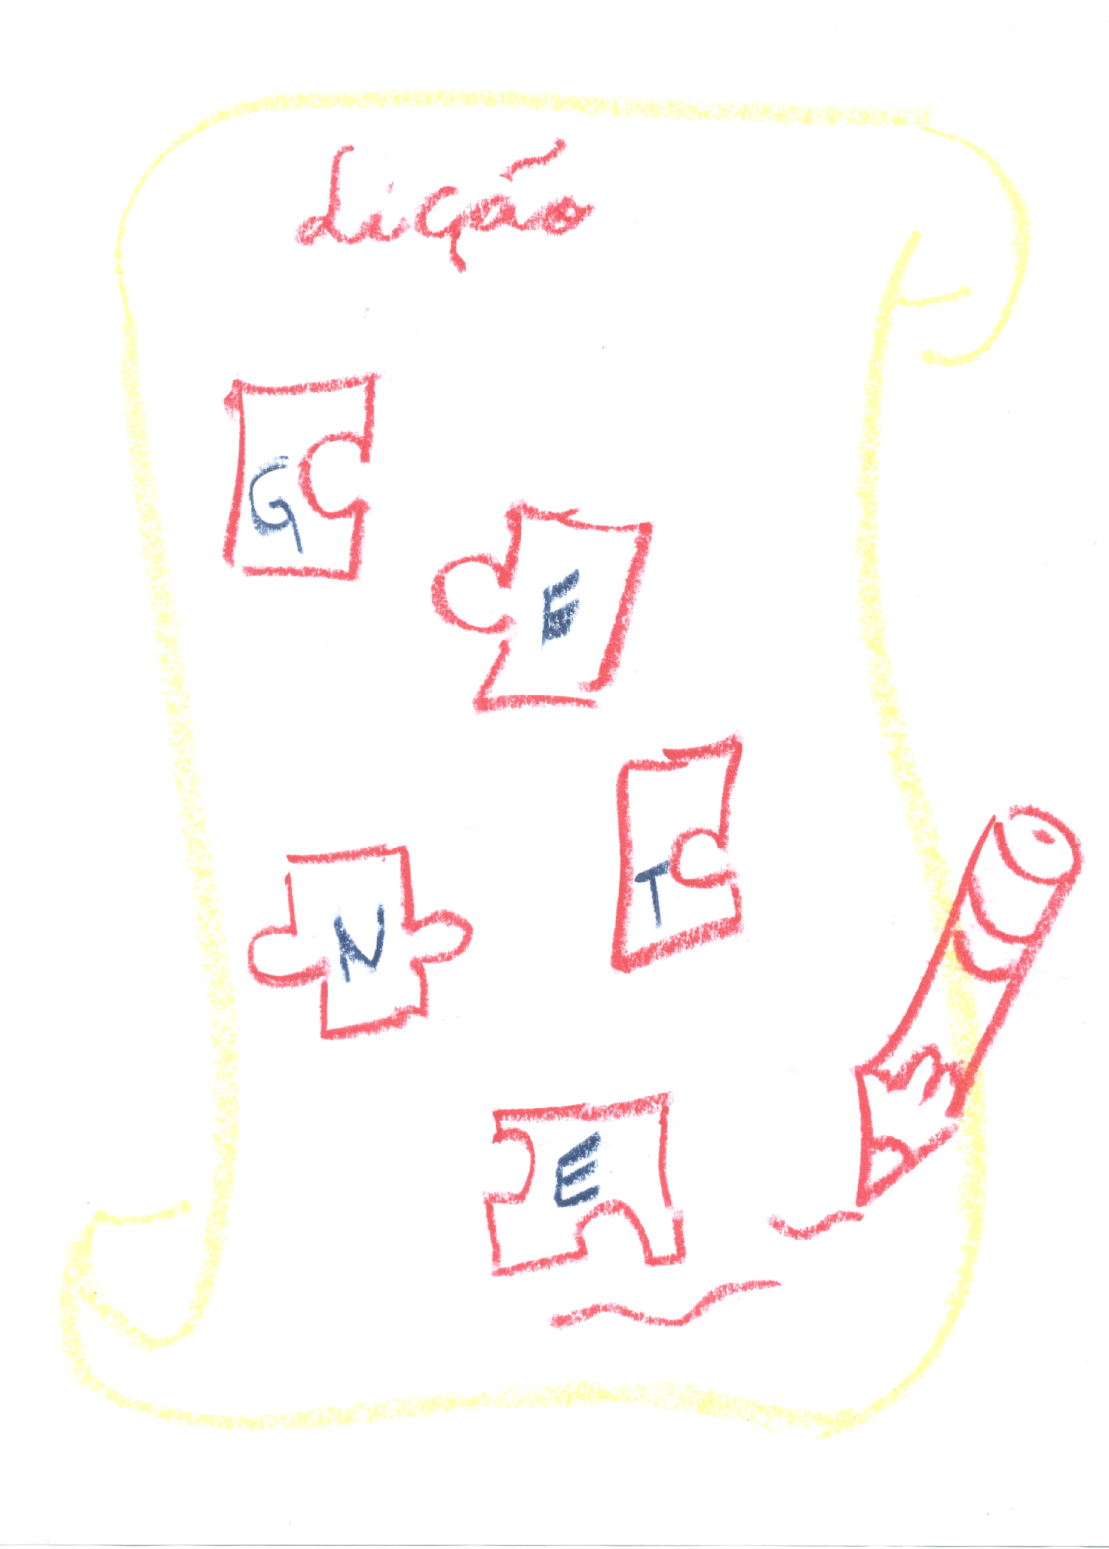 Lição
G
E
T
N
E